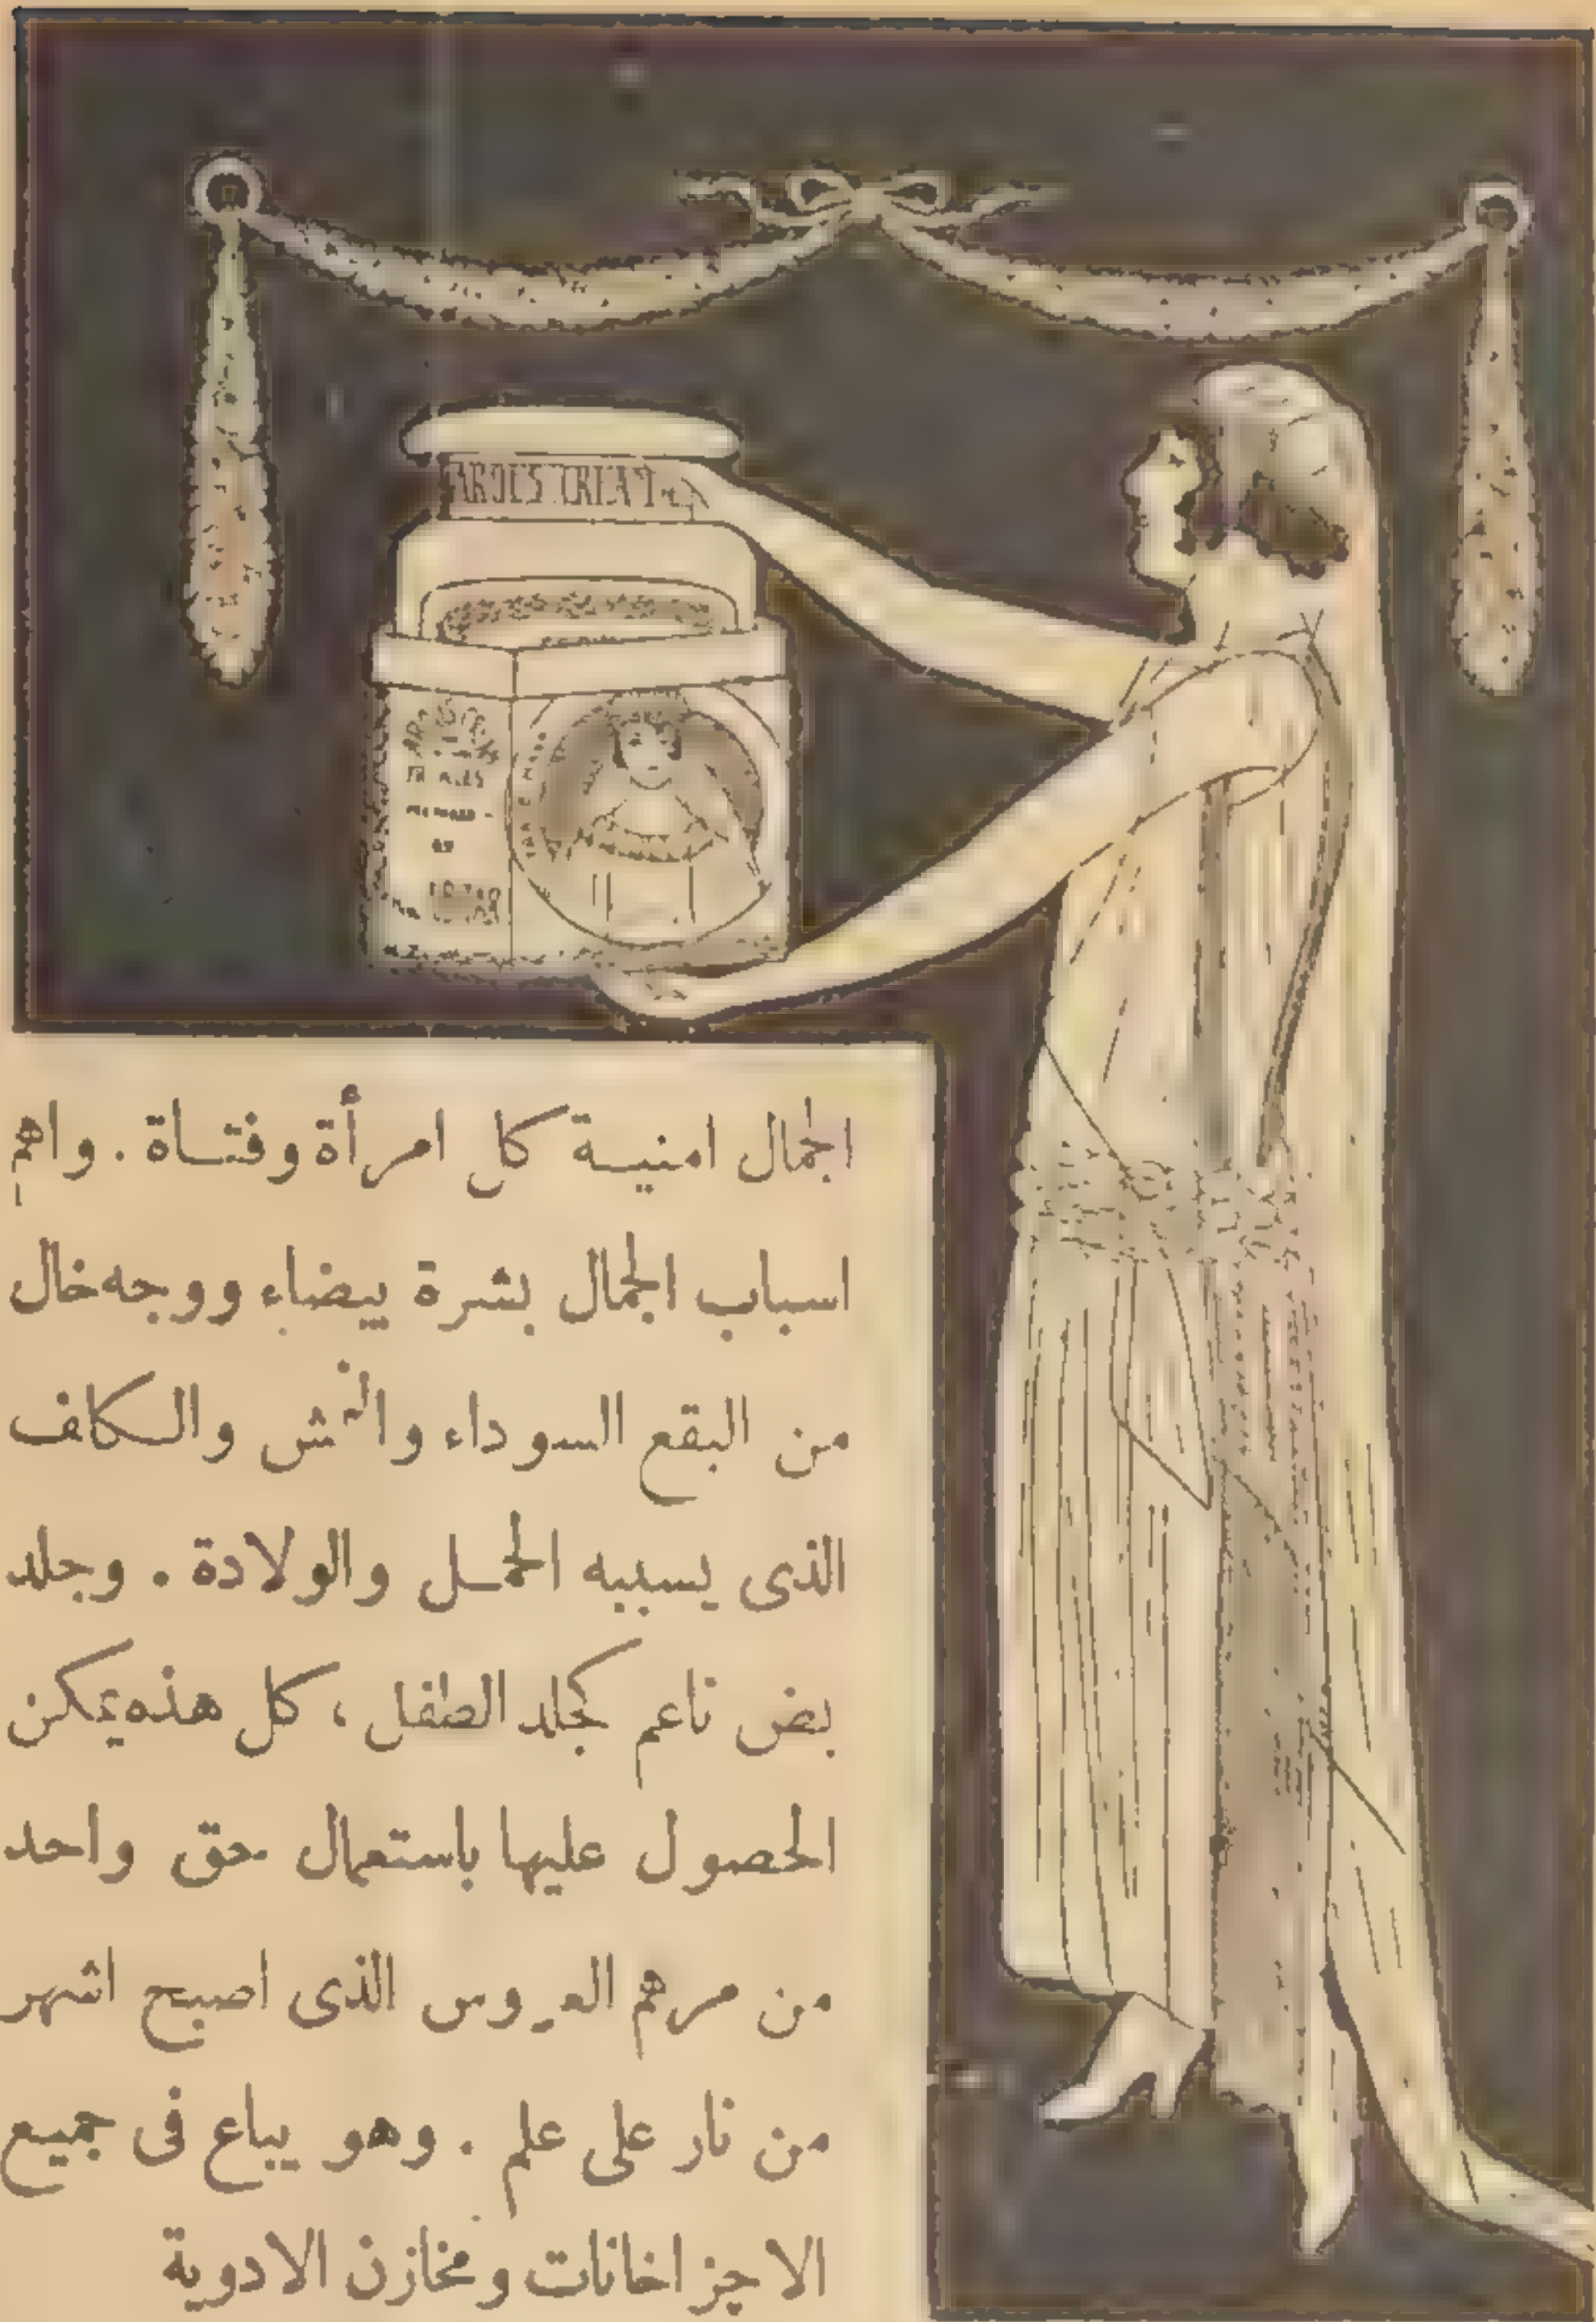 الجمال امنية كل امرأة وفتاة . واهم
اسباب الجمال بشرة بيضاء ووجه خال
من البقع السوداء والنمش والكاف
الذى يسببه الحمل والولادة . وجلد
بض ناعم كجلد الطفل ، كل هذه يمكن
الحصول عليها باستعمال حق واحد
من مرهم العروس الذى اصبح اشهر
من نار على علم . وهو يباع فى جميع
الاجزاخانات ومخازن الادوية